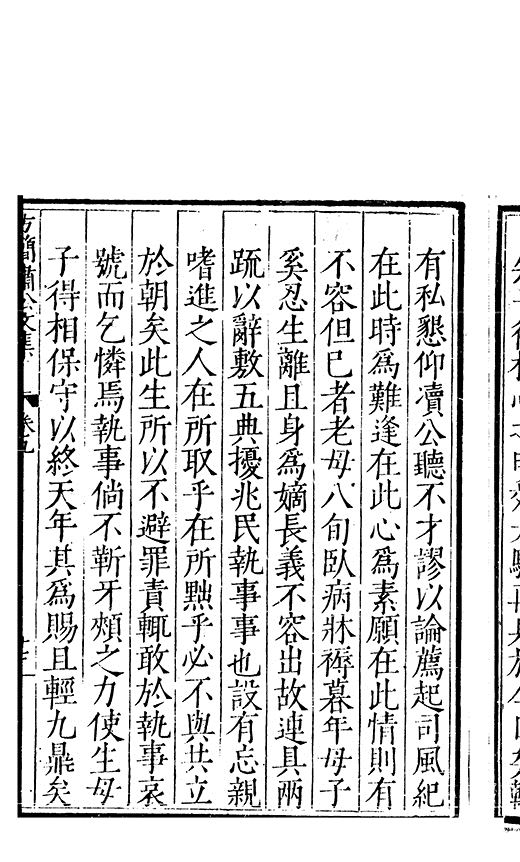 有私懇仰凟公聽不才謬以論薦起司風紀
在此時爲難逢在此心爲素願在此情則有
不容但已者老母八旬臥病牀褥暮年母子
奚忍生離且身爲嫡長義不容出故連具兩
疏以辭敷五典擾兆民執事事也設有忘親
嗜進之人在所取乎在所黜乎必不與共立
於朝矣此生所以不避罪責輒敢於執事哀
號而乞憐焉執事倘不靳牙頰之力使生母
子得相保守以終天年其爲賜且輕九鼎矣
方簡肅公文集 卷五